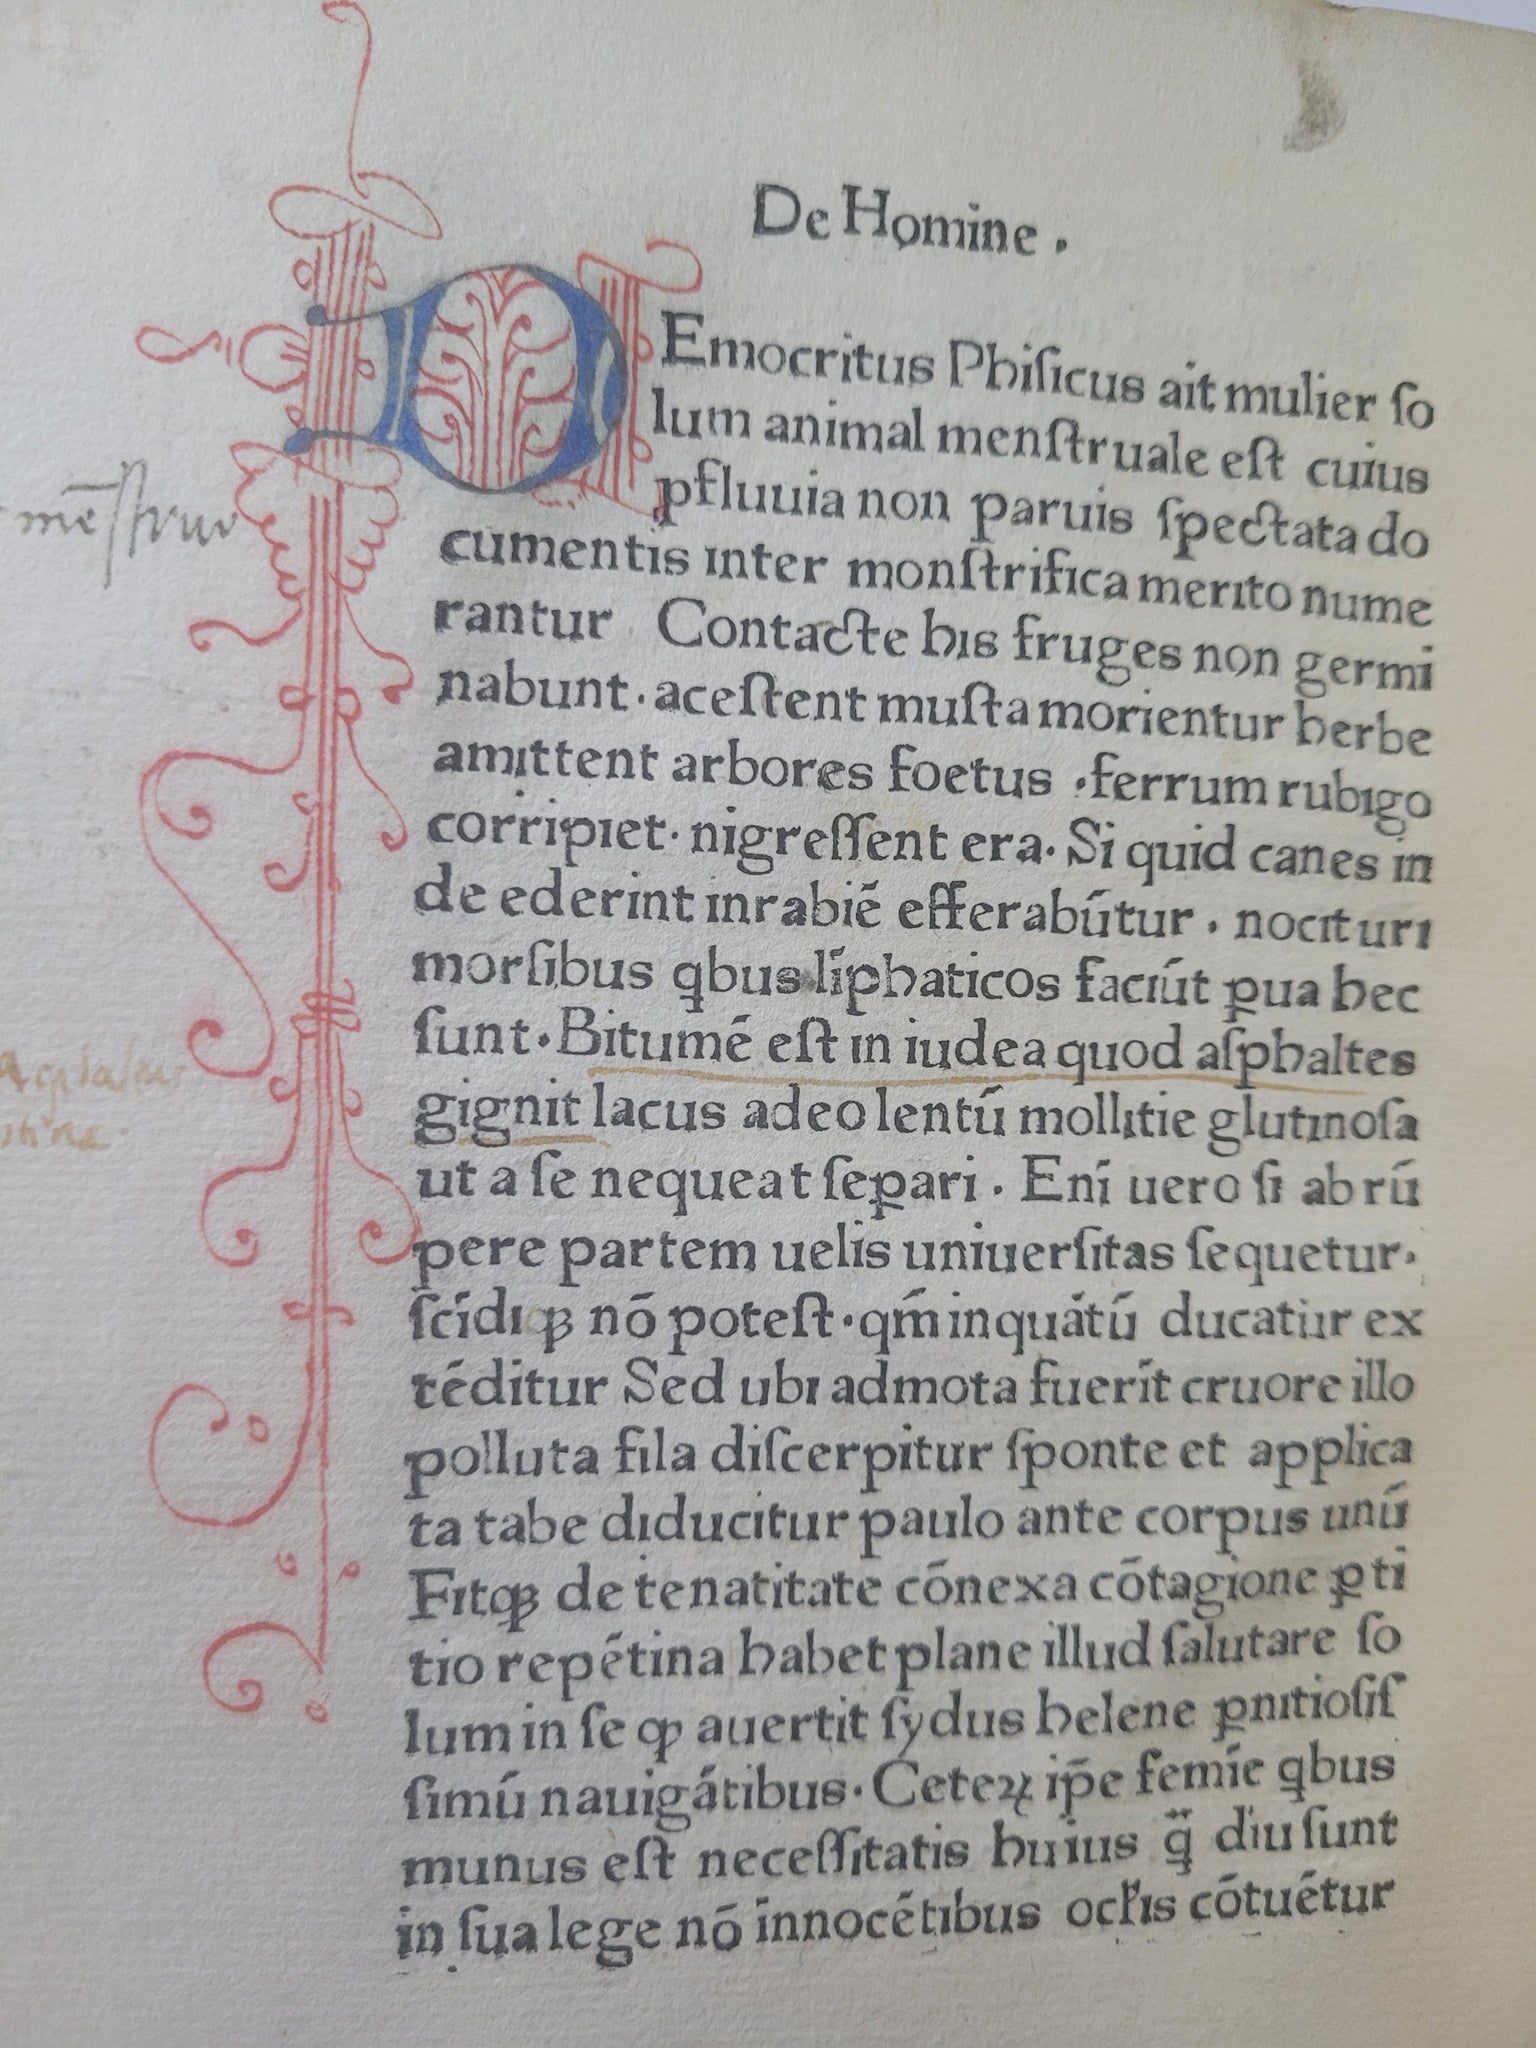 De Homine .
DEmocritus Phiſicus ait mulier ſo
lum animal menſtruale eſt cuius
ꝓfluuia non paruis ſpectata do
cumentis inter monſtrifica merito nume
rantur Contacte his fruges non germi
nabunt · aceſtent muſta morientur herbe
amittent arbores foetus · ferrum rubigo
corripiet · nigreſſent era · Si quid canes in
de ederint in rabiē efferabūtur · nocituri
morſibus qbus līphaticos faciūt ꝑua hec
ſunt · Bitumē eſt in iudea quod aſphaltes
gignit lacus adeo lentū mollitie glutinoſa
ut a ſe nequeat ſeꝑari · Enī uero ſi ab rū
pere partem uelis uniuerſitas ſequetur ·
ſcīdi qꝫ nō poteſt · qm̄ inquātū ducatur ex
tēditur Sed ubi admota fuerīt cruore illo
polluta fila diſcerpitur ſponte et applica
ta tabe diducitur paulo ante corpus unū
Fitqꝫ de tenatitate cōnexa cōtagione ꝑti
tio repētina habet plane illud ſalutare ſo
lum in ſe ꝙ auertit ſydus helene ꝑnitioſiſ
ſimū nauigātibus · Ceteꝝ ip̄e femīe qbus
munus eſt neceſſitatis huius q̄ diu ſunt
in ſua lege nō innocētibus ocl̓is cōtuētur
mēſtruo